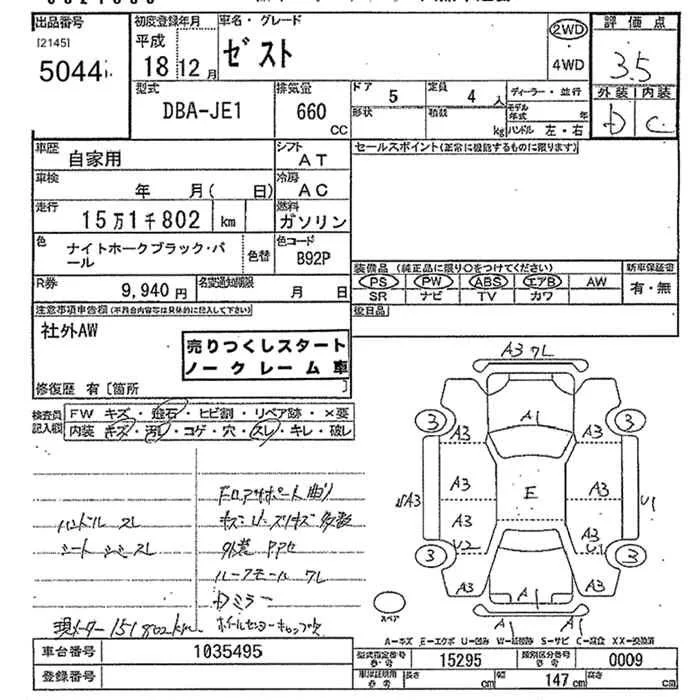 出品番号
[2145]
5044
初度登録年月
平成
18 12月
車名・グレード
ゼスト
2WD
・
4WD
評価点
3.5
外装 内装
D C
型式
DBA-JE1
排気量
660
CC
ドア
5
定員
4 人
ディーラー・並行
形状
積数
kg
モデル年式 年
ハンドル 左・右
車歴
自家用
シフト
AT
セールスポイント(正常に機能するものに限ります)
車検
年 月( 日)
冷房
AC
走行
15万1千802 km
燃料
ガソリン
色
ナイトホークブラック・パール
色替
色コード
B92P
R券
9,940円
名変通知期限
月 日
装備品 (純正品に限り○をつけてください)
新車保証書
PS PW ABS エアB AW
有・無
SR ナビ TV カワ
後日品
注意事項申告欄(不具合内容等は具体的に記入して下さい)
社外AW
売りつくしスタート
ノークレーム車
修復歴 有 [箇所 ]
検査員記入欄
FW キズ・飛石・ヒビ割・リペア跡・×要
内装 キズ・汚れ・コゲ・穴・スレ・キレ・破レ
ハンドル スレ
シート シミ スレ
外装
ルーフモール ワレ
ミラー
現メーター 151802km
A3 ワレ
A1
3 3
A3 A3
A3 E A3
A3 A3
A3 U1
U2 U1
3 3
A3 A3
A1
A1 A1
スペア
A-キズ E-エクボ U-凹み W-補修跡 S-サビ C-腐食 XX-交換済
車台番号
1035495
登録番号
型式指定番号
参考
15295
類別区分番号
参考
0009
車庫証明用
参考
長さ
cm
幅
147 cm
高さ
cm